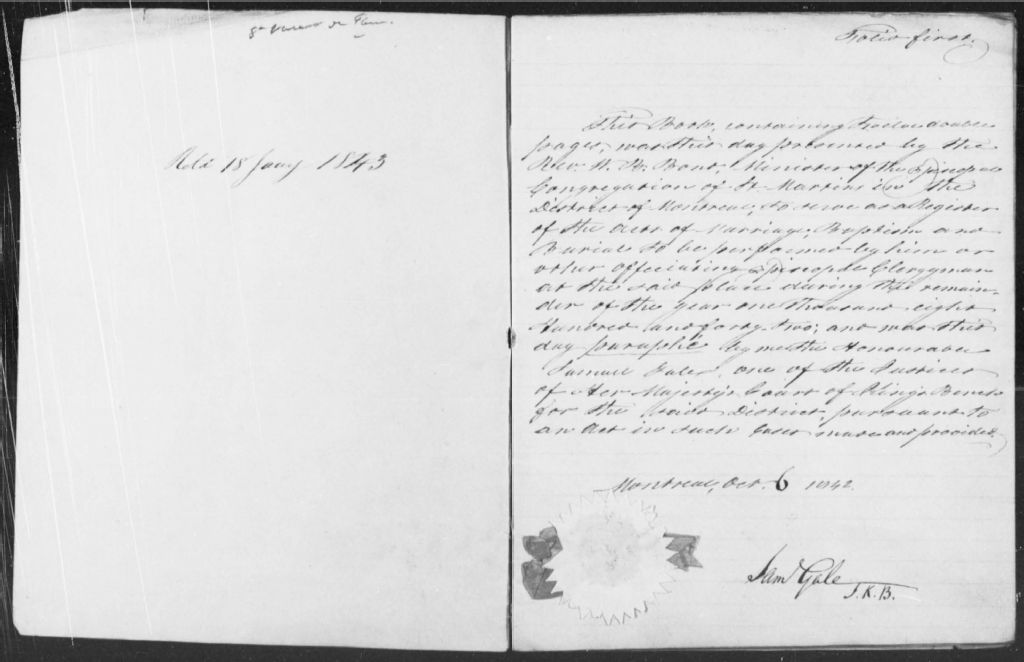 St Vincent de Paul
Recd 18 Jany 1843
Folio first
This Book, containing twelve double
pages, was this day presented by the
Rev. W. Bond, Minister of the Episcopal
Congregation of St. Martins in the
District of Montreal, to serve as a Register
of the Acts of Marriage, Baptism and
Burial to be performed by him or
other officiating Episcopal Clergyman
at the said place during the remain-
der of the year one thousand eight
Hundred and forty two; and was this
day paraphé by me the Honourable
Samuel Gale, one of the Justices
of Her Majesty's Court of King's Bench
for the said District, pursuant to
an Act in such Case made and provided.
Montreal, Oct. 6 1842.
Saml Gale
J.K.B.